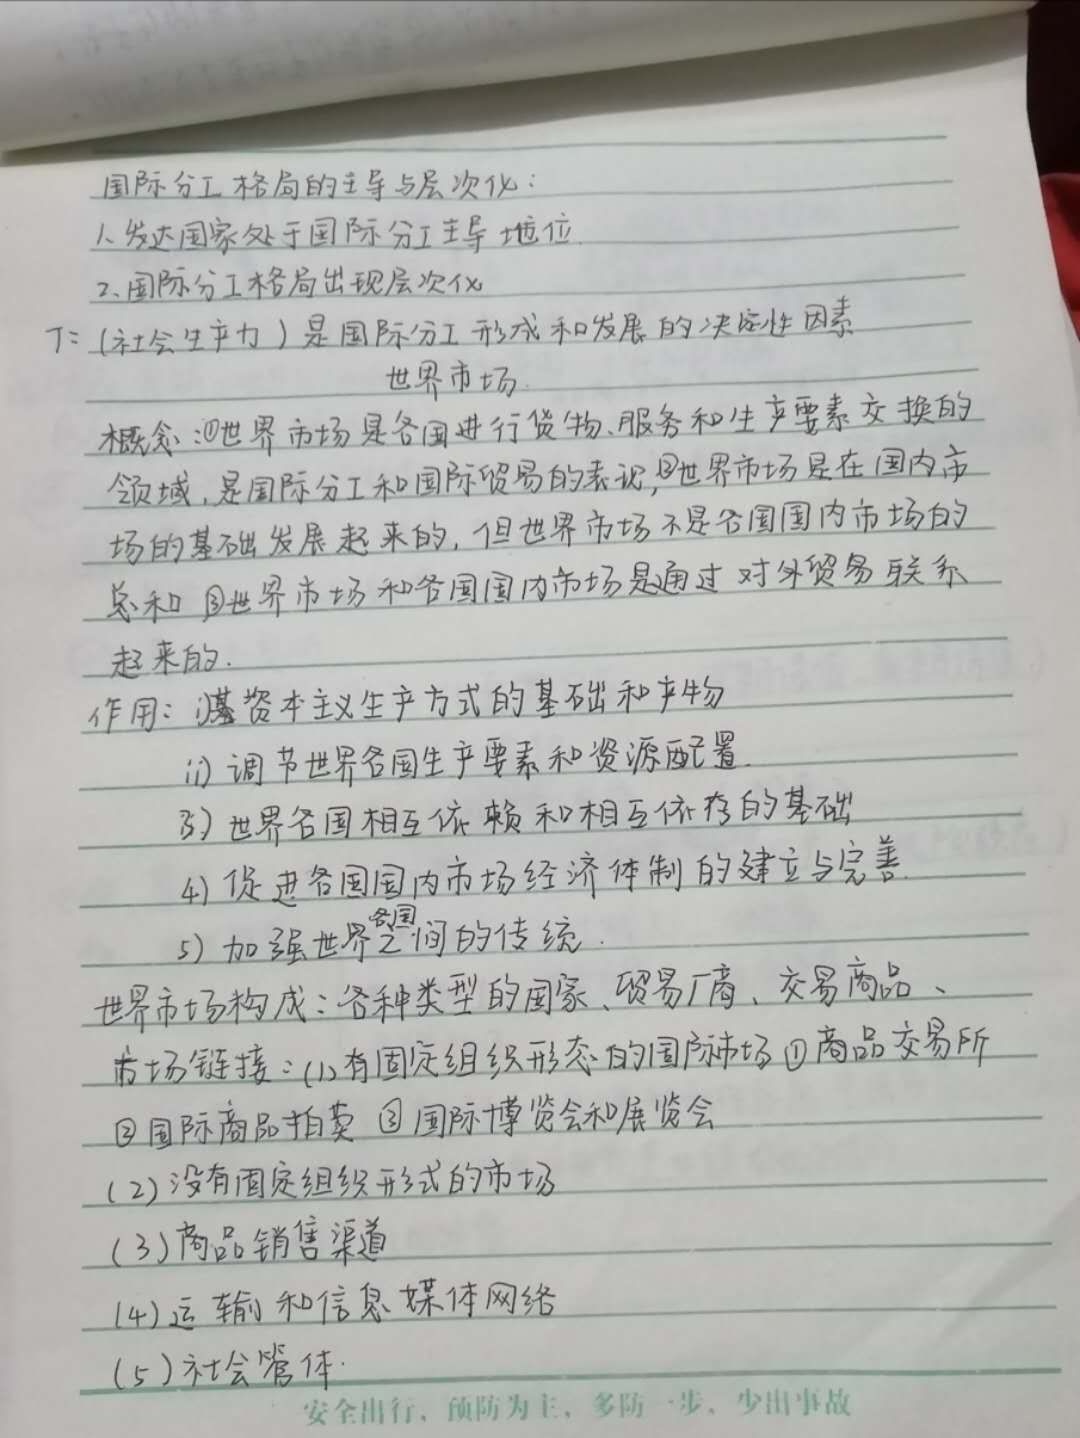 国际分工格局的主导与层次化:
1、发达国家处于国际分工主导地位.
2、国际分工格局出现层次化
T= (社会生产力) 是国际分工形成和发展的决定性因素
世界市场.
概念:①世界市场是各国进行货物、服务和生产要素交换的
领域,是国际分工和国际贸易的表现,②世界市场是在国内市
场的基础发展起来的,但世界市场不是各国国内市场的
总和 ③世界市场和各国国内市场是通过对外贸易联系
起来的.
作用: 资本主义生产方式的基础和产物
调节世界各国生产要素和资源配置.
3) 世界各国相互依赖和相互依存的基础
4) 促进各国国内市场经济体制的建立与完善.
5) 加强世界各国之间的传统.
世界市场构成:各种类型的国家、贸易厂商、交易商品、
市场链接:(1)有固定组织形态的国际市场①商品交易所
②国际商品拍卖 ③国际博览会和展览会
(2)没有固定组织形式的市场
(3)商品销售渠道
(4)运输和信息媒体网络
(5)社会管体.
安全出行,预防为主,多防一步,少出事故